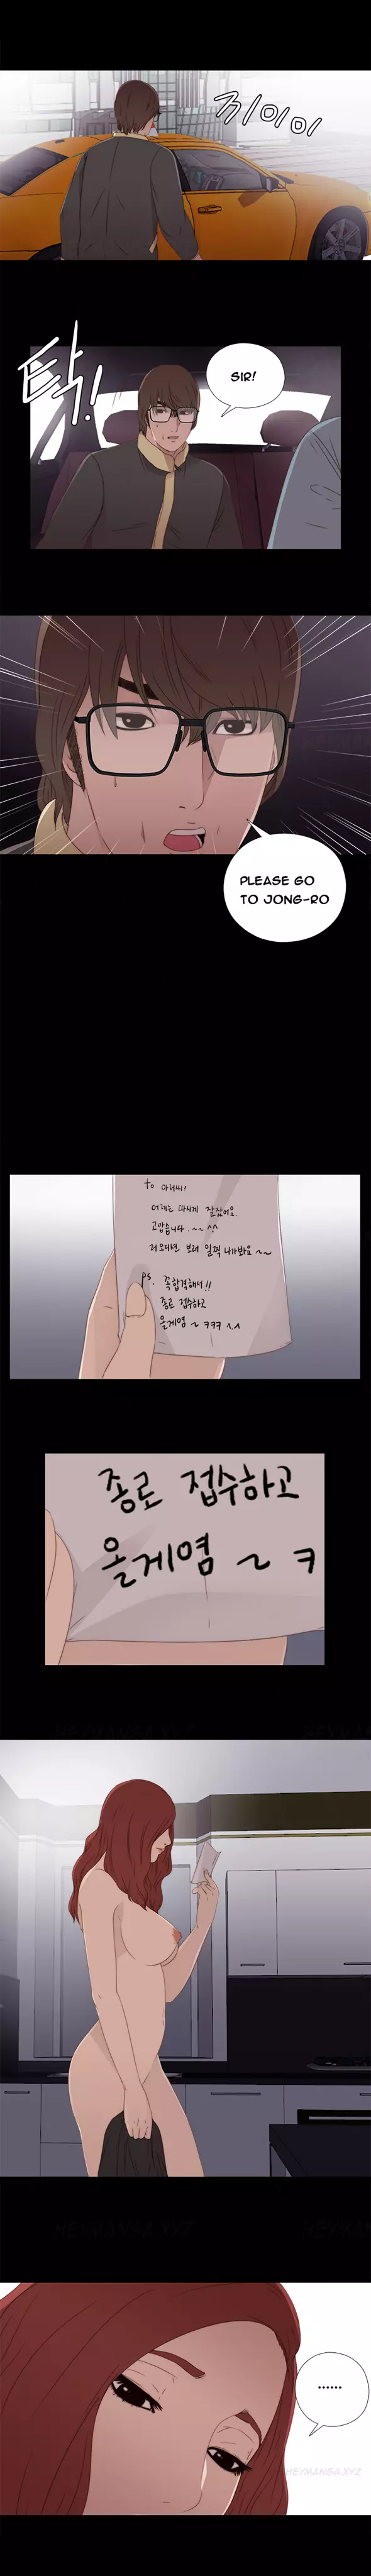 끼이이이
탁!
SIR!
PLEASE GO
TO JONG-RO
to
어제는 맛있게 잘잤어요.
고맙습니다. ~~ ^^
보러 일찍 나가봐요 ~~
ps. 꼭합격해서!!
종로 접수하고
올게염 ~ ㅋㅋㅋ ^.^
종로 접수하고
올게염 ~ ㅋ
HEYMANGA.XYZ
HEYMANGA.XYZ
......
HEYMANGA.XYZ